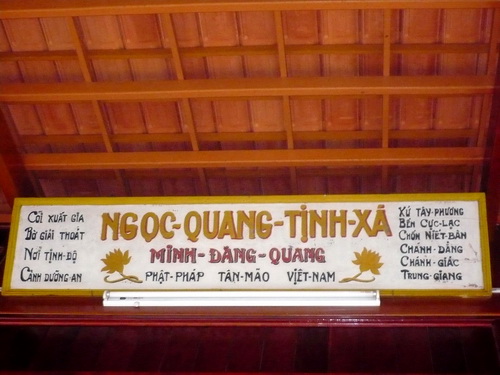 CÕI XUẤT GIA
BỜ GIẢI THOÁT
NƠI TỊNH-ĐỘ
CẢNH DƯỠNG-AN
NGỌC-QUANG-TỊNH-XÁ
MINH-ĐĂNG-QUANG
PHẬT-PHÁP TÂN-MÃO VIỆT-NAM
XỨ TÂY-PHƯƠNG
BẾN CỰC-LẠC
CHỐN NIẾT-BÀN
CHÁNH-ĐẲNG
CHÁNH-GIÁC
TRUNG-GIANG